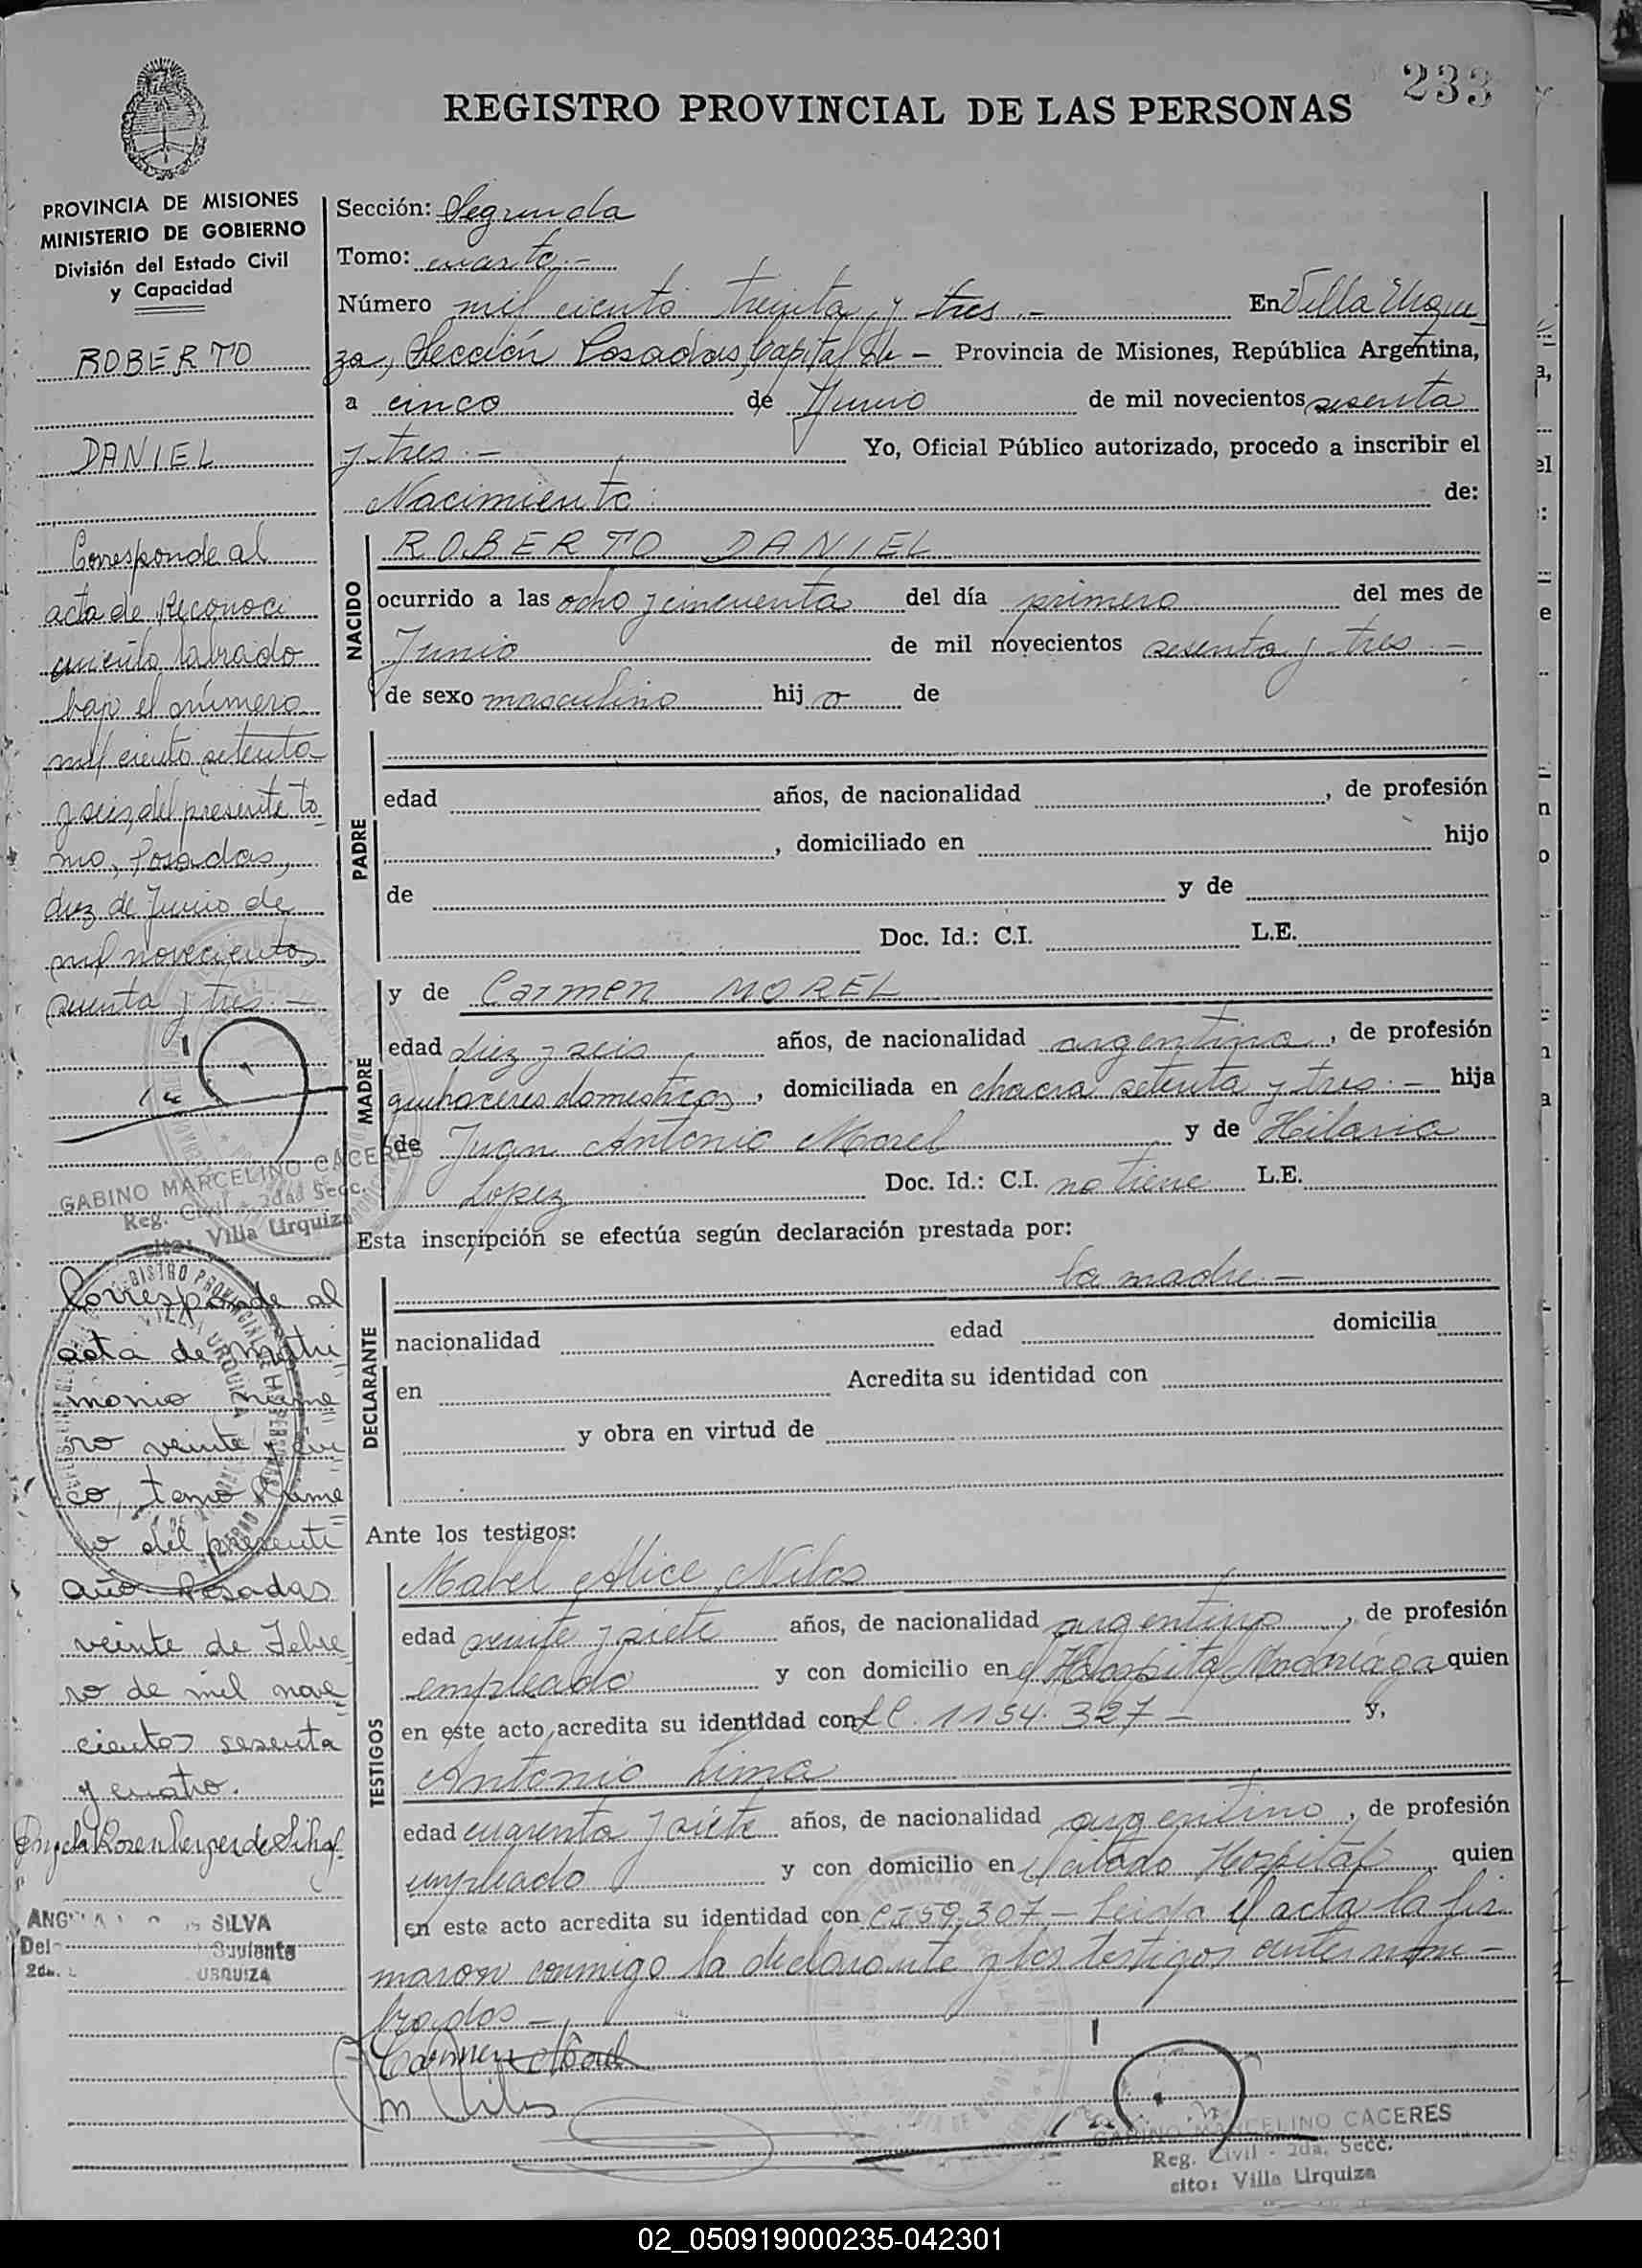 233
REGISTRO PROVINCIAL DE LAS PERSONAS
PROVINCIA DE MISIONES
MINISTERIO DE GOBIERNO
División del Estado Civil
y Capacidad
ROBERTO
DANIEL
Corresponde al
acta de Reconoci
miento labrado
bajo el número
mil ciento setenta
y seis, del presente to
mo, Posadas,
diez de Junio de
mil novecientos
sesenta y tres.-
GABINO MARCELINO CACERES
Reg. Civil - 2da Secc.
sito: Villa Urquiza
Corresponde al
acta de Matri
monio núme
ro veinte y cin
co, tomo Prime
ro del presente
año. Posadas
veinte de Febre
ro de mil nove
cientos sesenta
y cuatro.
SILVA
Suplente
URQUIZA
Sección: Segunda
Tomo: cuarto.-
Número mil ciento treinta y tres.- En Villa Urqui
za, Sección Posadas, Capital de - Provincia de Misiones, República Argentina,
a cinco de Junio de mil novecientos sesenta
y tres.- Yo, Oficial Público autorizado, procedo a inscribir el
Nacimiento de:
NACIDO
ROBERTO DANIEL
ocurrido a las ocho y cincuenta del día primero del mes de
Junio de mil novecientos sesenta y tres.-
de sexo masculino hijo de
PADRE
edad años, de nacionalidad , de profesión
, domiciliado en hijo
de y de
Doc. Id.: C.I. L.E.
MADRE
y de Carmen MOREL
edad diez y seis años, de nacionalidad argentina, de profesión
quehaceres domesticos, domiciliada en chacra setenta y tres.- hija
de Juan Antonio Morel y de Hilaria
Lopez Doc. Id.: C.I. no tiene L.E.
Esta inscripción se efectúa según declaración prestada por:
DECLARANTE
la madre.-
nacionalidad edad domicilia
en Acredita su identidad con
y obra en virtud de
Ante los testigos:
TESTIGOS
Mabel Alice
edad veinte y siete años, de nacionalidad argentina, de profesión
empleado y con domicilio en el Hospital Madariaga quien
en este acto acredita su identidad con LC. 1154.327 - y,
Antonio Lima
edad cuarenta y siete años, de nacionalidad argentino, de profesión
empleado y con domicilio en el citado Hospital quien
en este acto acredita su identidad con CI 59.307 - Leida el acta la fir
maron conmigo la declarante y los testigos antes nom-
brados -
Carmen Morel
GABINO MARCELINO CACERES
Reg. Civil - 2da. Secc.
sito: Villa Urquiza
02_050919000235-042301